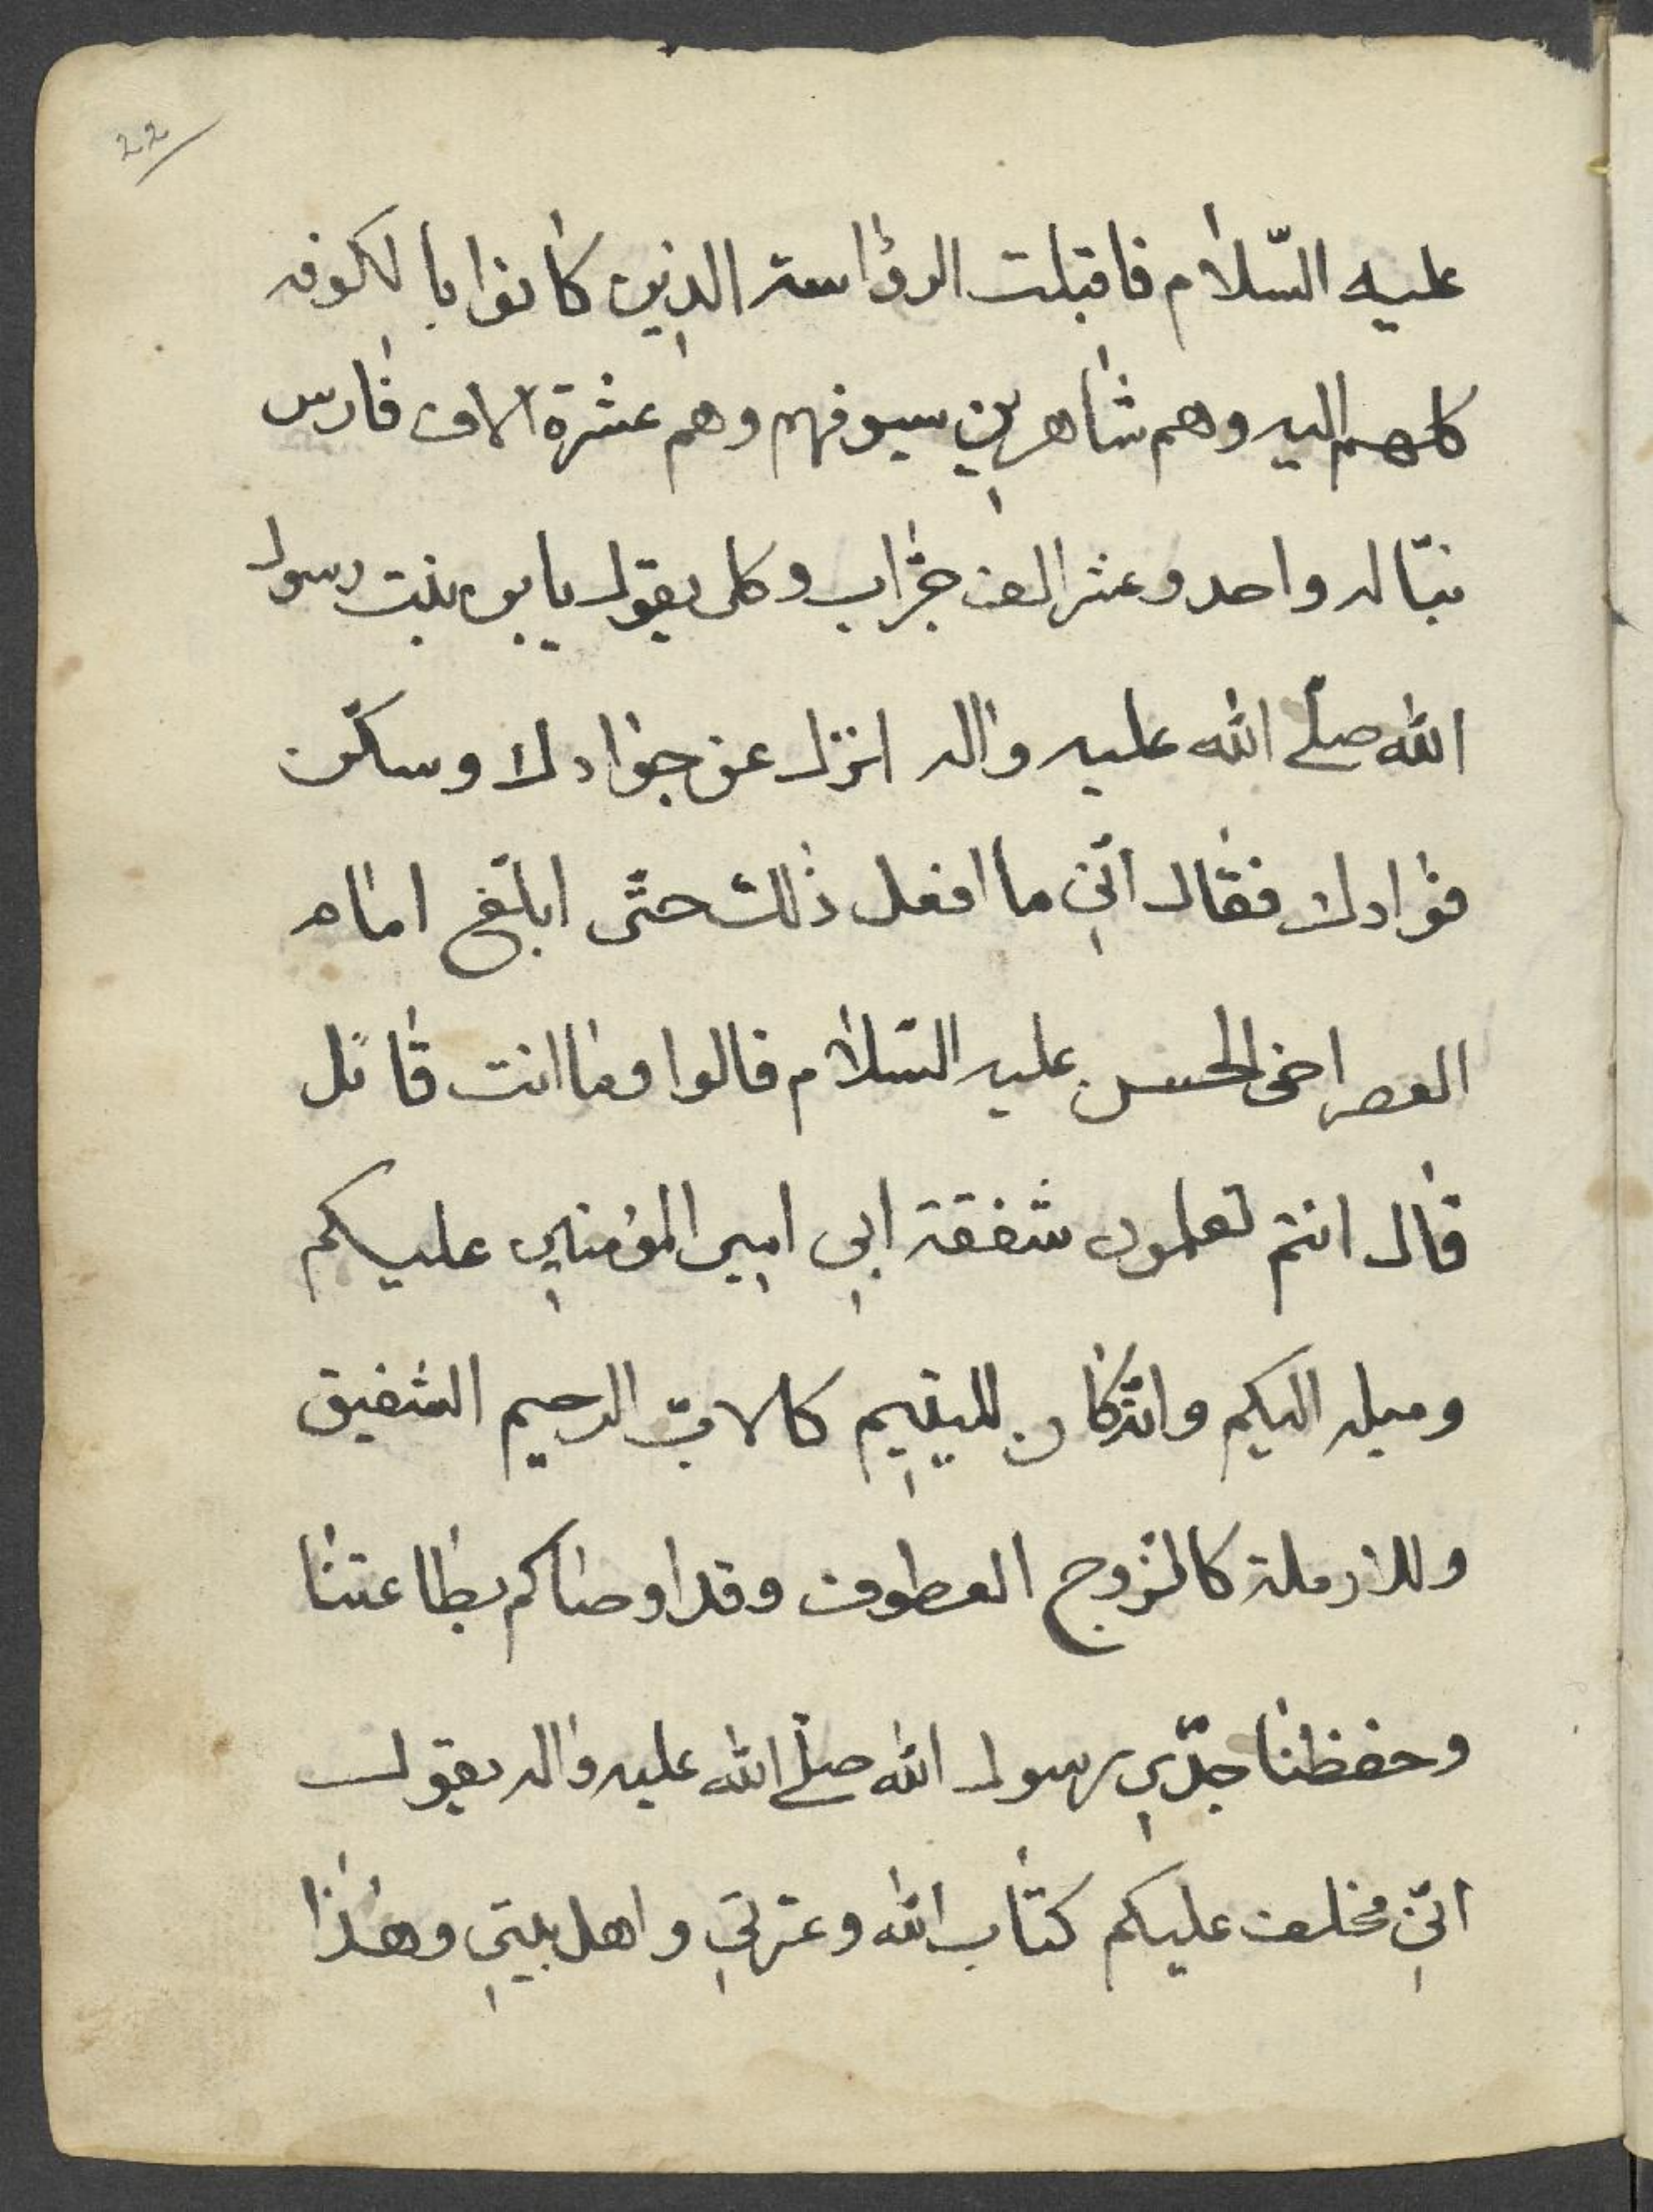 22
عليه السّلام فاقبلت الرؤاسة الذين كانوا بالكوفه
كلهم اليه وهم شاهرين سيوفهم وهم عشرة الاف فارس
نبّاله واحد وعشر الف حرّاب وكل يقول يابن بنت رسول
الله صلّى الله عليه واله انزل عن جوادك وسكّن
فوادك فقال انّي ما افعل ذلك حتّى ابلّغ امامه
العصر اخى الحسن عليه السّلام قالوا وما انت قائل
قال انتم تعلمون شفقة ابي امير المؤمنين عليكم
وميله اليكم وانّه كان لليتيم كالابّ الرحيم الشفيق
وللارملة كالزوج العطوف وقد اوصاكم بطاعتنا
وحفظنا جدّي رسول الله صلّى الله عليه واله يقول
انّي مخلف عليكم كتاب الله وعترتي واهل بيتي وهذا